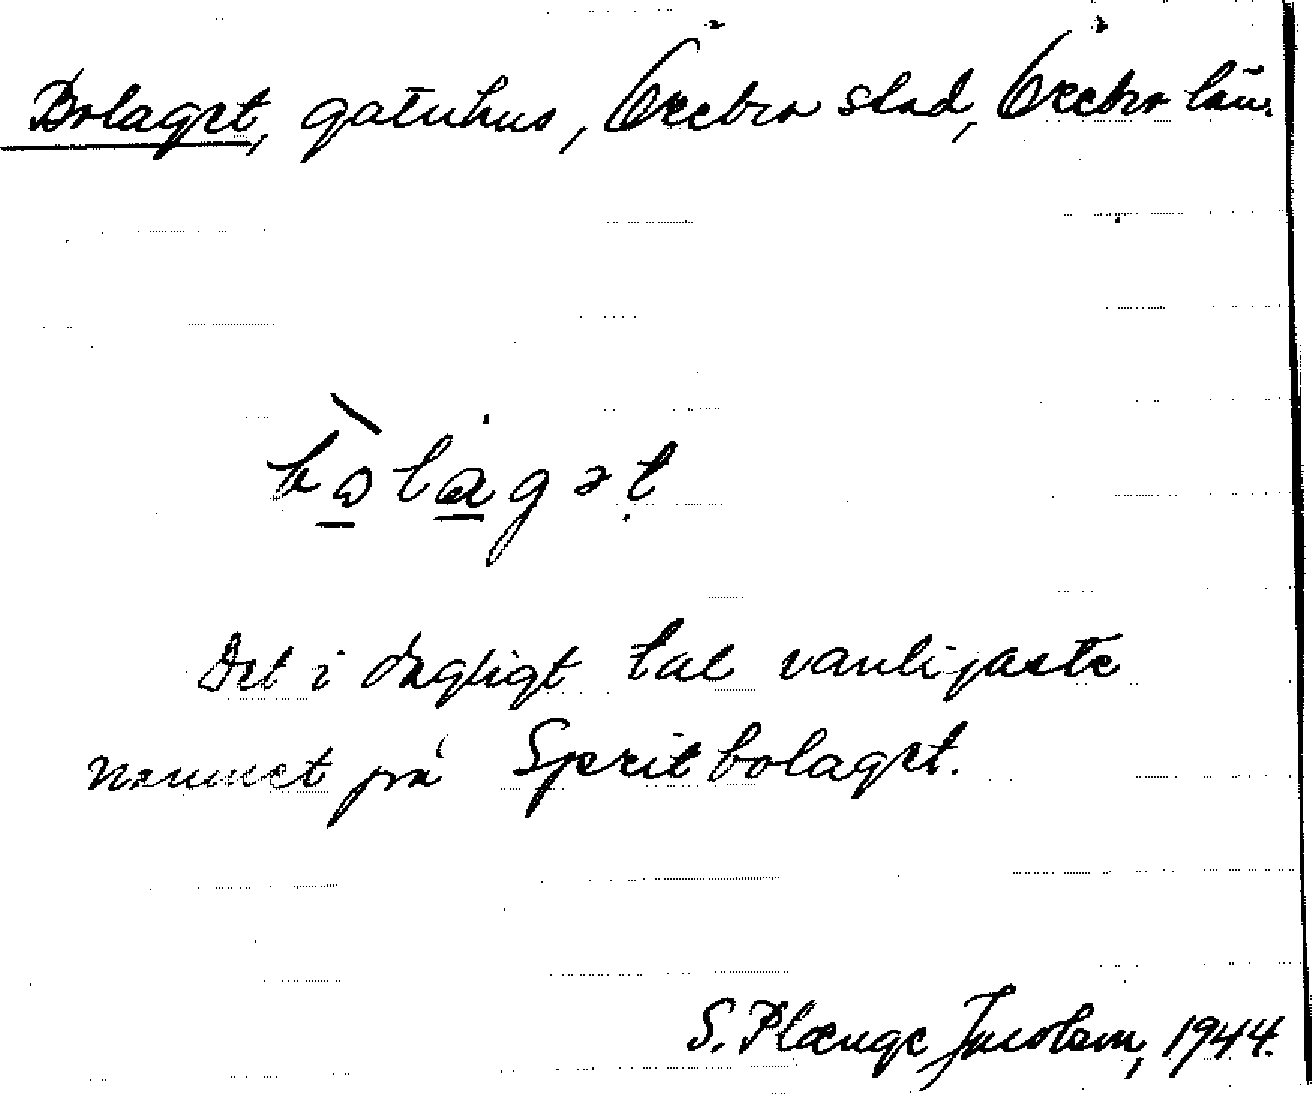 Bolaget, gatuhus, Örebro stad, Örebro län.
bòlagət
Det i dagligt tal vanligaste
namnet på Spritbolaget.
S. Plænge Jacobson, 1944.